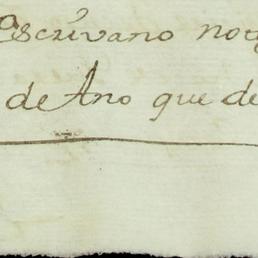 escrivano not
de Ano que de